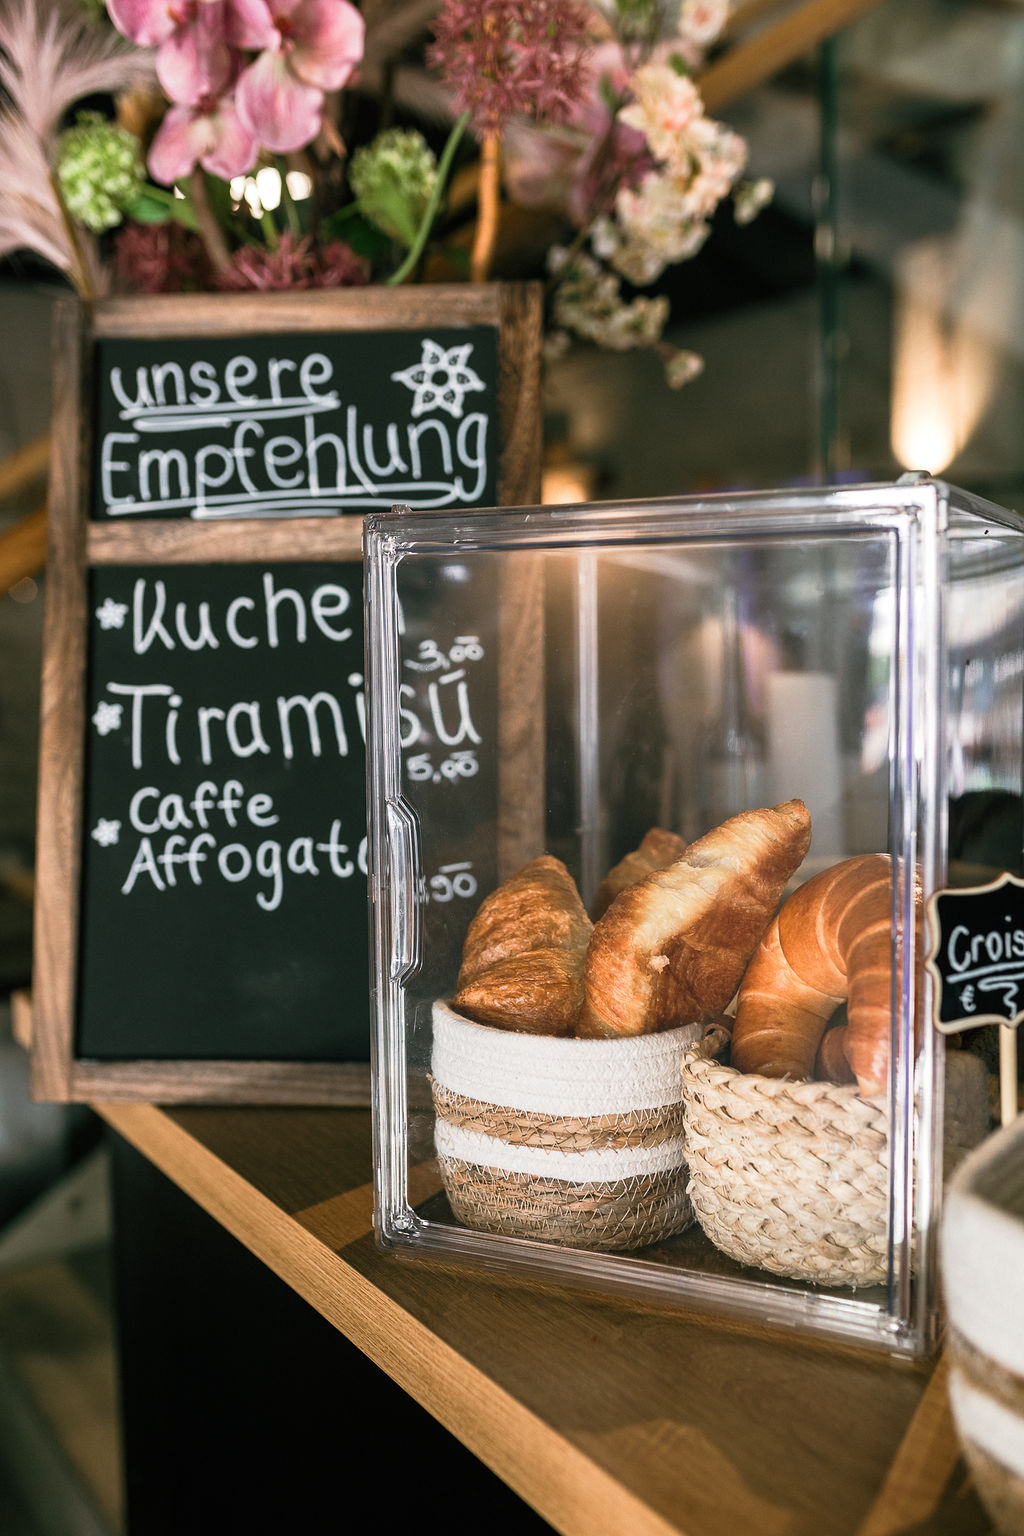 unsere
Empfehlung
Kuchen
3,00
Tiramisu
5,00
Caffe
Affogato
Crois
€